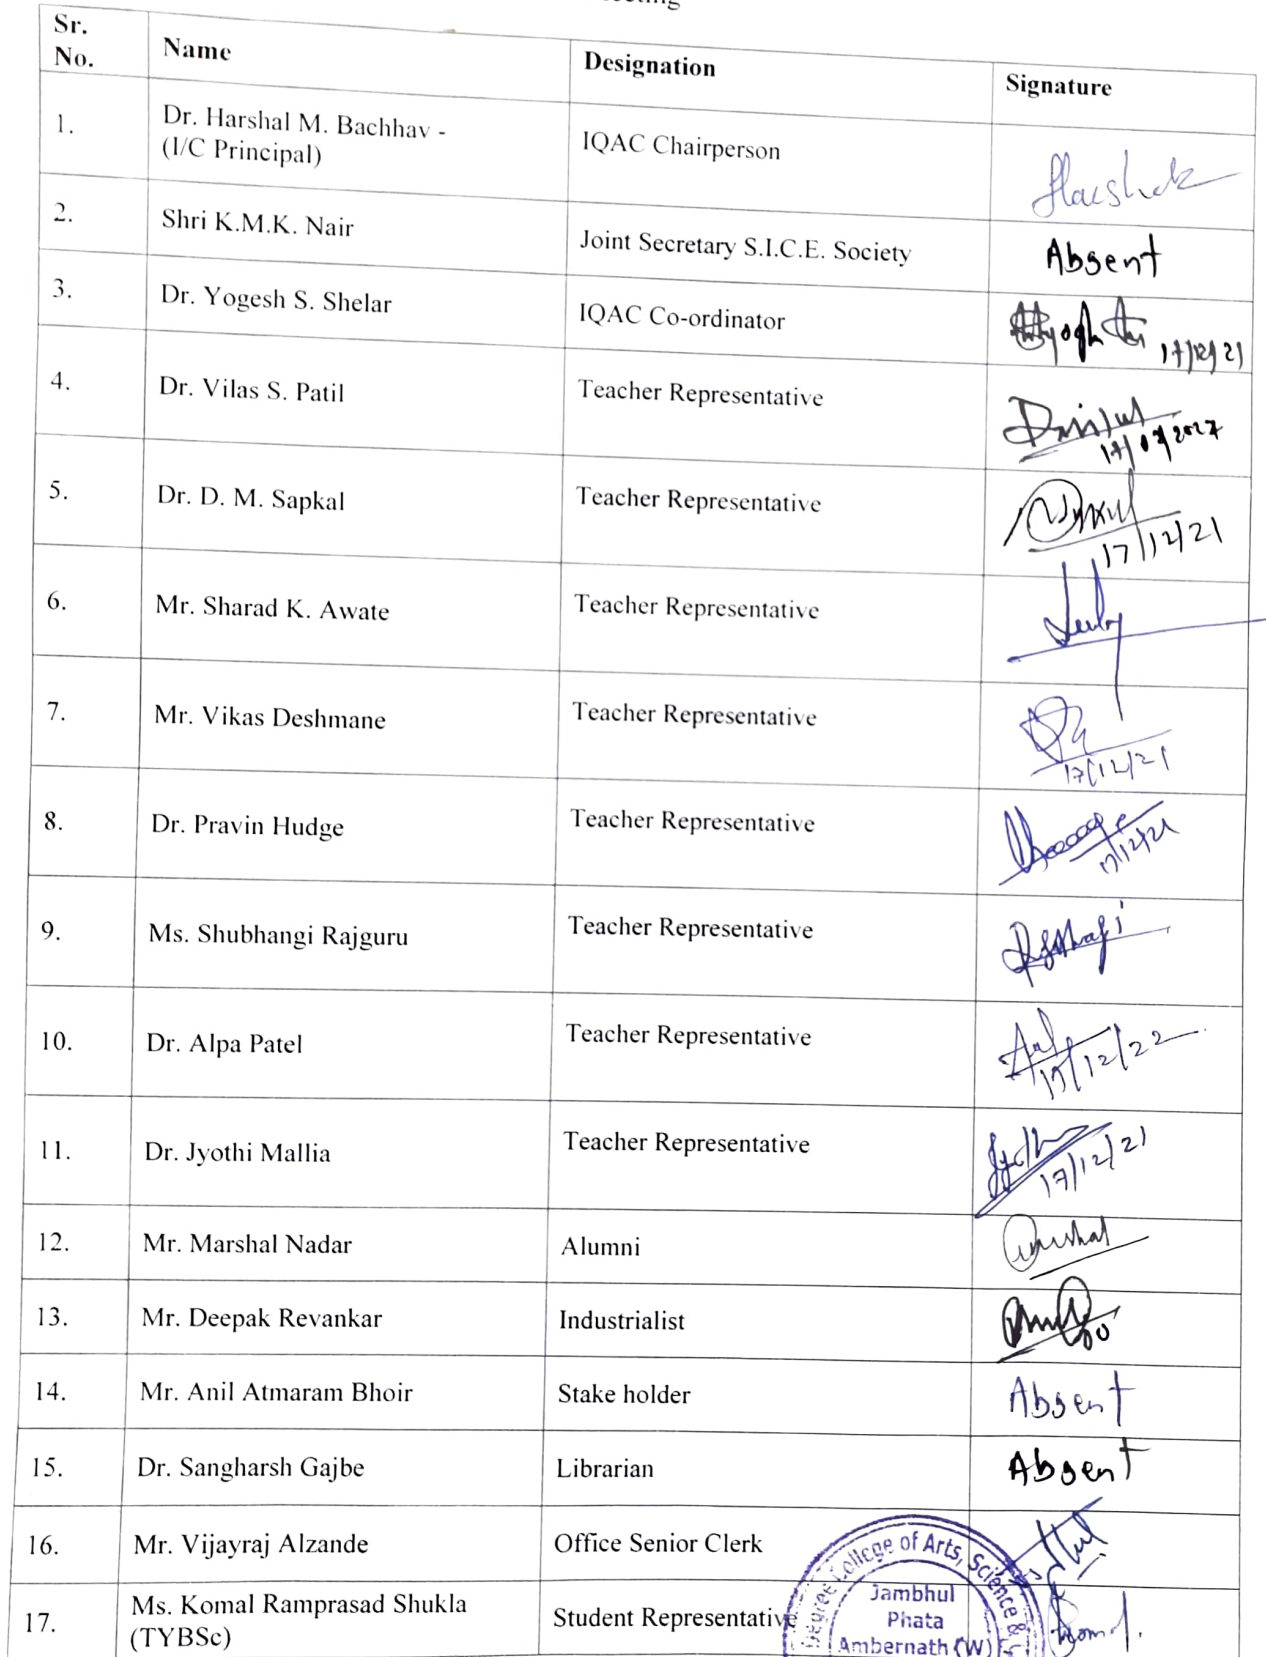 Sr. No. Name Designation Signature
1. Dr. Harshal M. Bachhav - IQAC Chairperson Harshal
(I/C Principal)
2. Shri K.M.K. Nair Joint Secretary S.I.C.E. Society Absent
3. Dr. Yogesh S. Shelar IQAC Co-ordinator 17/12/21
4. Dr. Vilas S. Patil Teacher Representative
5. Dr. D. M. Sapkal Teacher Representative 17/12/21
6. Mr. Sharad K. Awate Teacher Representative
7. Mr. Vikas Deshmane Teacher Representative 17/12/21
8. Dr. Pravin Hudge Teacher Representative 17/12/21
9. Ms. Shubhangi Rajguru Teacher Representative
10. Dr. Alpa Patel Teacher Representative 17/12/22
11. Dr. Jyothi Mallia Teacher Representative 17/12/21
12. Mr. Marshal Nadar Alumni
13. Mr. Deepak Revankar Industrialist
14. Mr. Anil Atmaram Bhoir Stake holder Absent
15. Dr. Sangharsh Gajbe Librarian Absent
16. Mr. Vijayraj Alzande Office Senior Clerk
17. Ms. Komal Ramprasad Shukla Student Representative
(TYBSc)
Degree College of Arts, Science &
Jambhul
Phata
Ambernath (W)